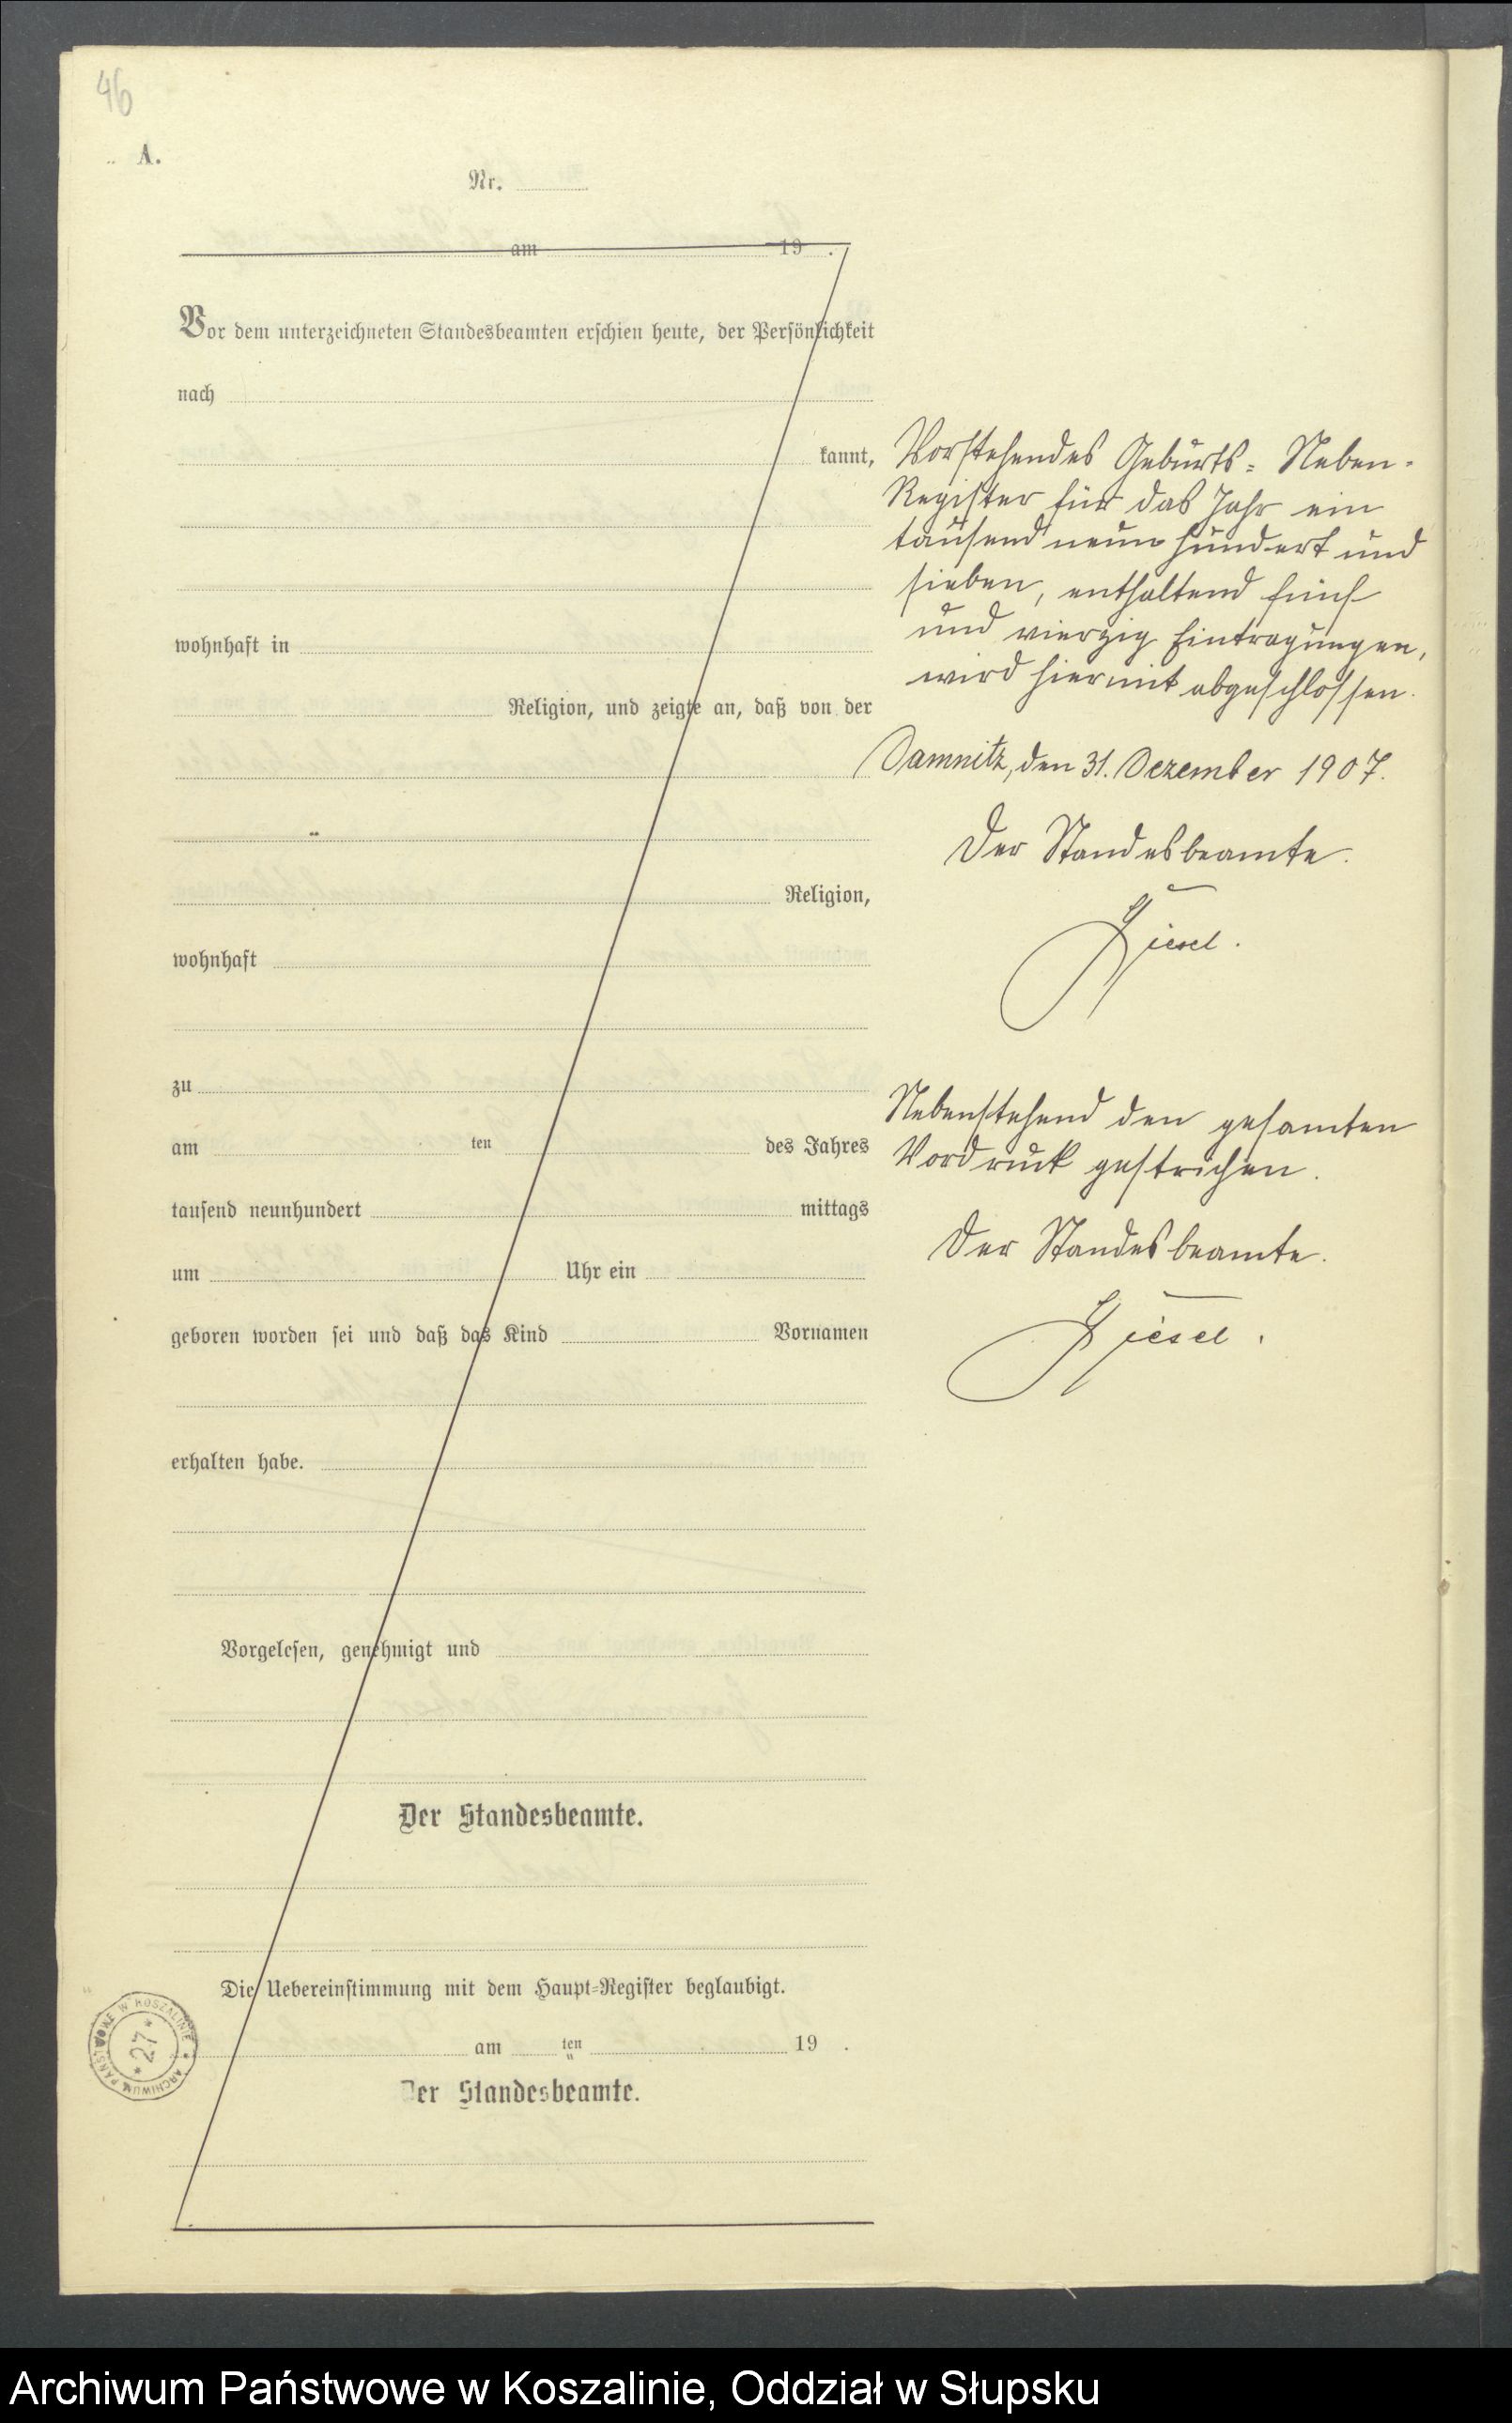 46
A.
Nr.
am 19 .
Vor dem unterzeichneten Standesbeamten erschien heute, der Persönlichkeit
nach
kannt,
wohnhaft in
Religion, und zeigte an, daß von der
Religion,
wohnhaft
zu
am ten des Jahres
tausend neunhundert mittags
um Uhr ein
geboren worden sei und daß das Kind Vornamen
erhalten habe.
Vorgelesen, genehmigt und
Der Standesbeamte.
Die Uebereinstimmung mit dem Haupt=Register beglaubigt.
am ten 19 .
Der Standesbeamte.
Vorstehendes Geburts= Neben-
Register für das Jahr ein
tausend neun hundert und
sieben, enthaltend fünf
und vierzig Eintragungen,
wird hiermit abgeschlossen.
Damnitz, den 31. Dezember 1907.
Der Standesbeamte.
Nebenstehend den gesamten
Vordruck gestrichen.
Der Standesbeamte.
ARCHIWUM PAŃSTWOWE W KOSZALINIE
* 27 *
Archiwum Państwowe w Koszalinie, Oddział w Słupsku